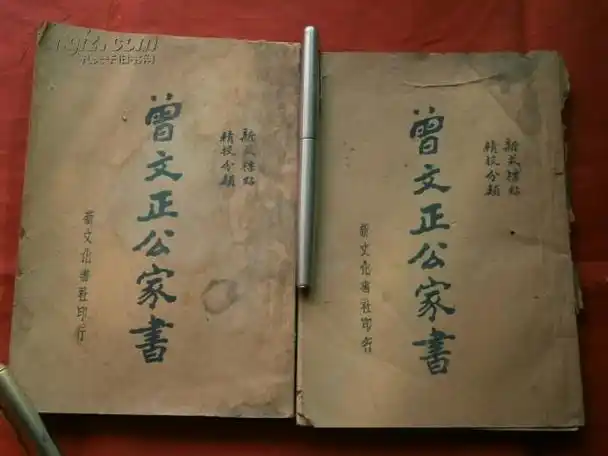 孔夫子旧书网
新式標點
精校分類
曾文正公家書
新文化書社印行
新式標點
精校分類
曾文正公家書
新文化書社印行